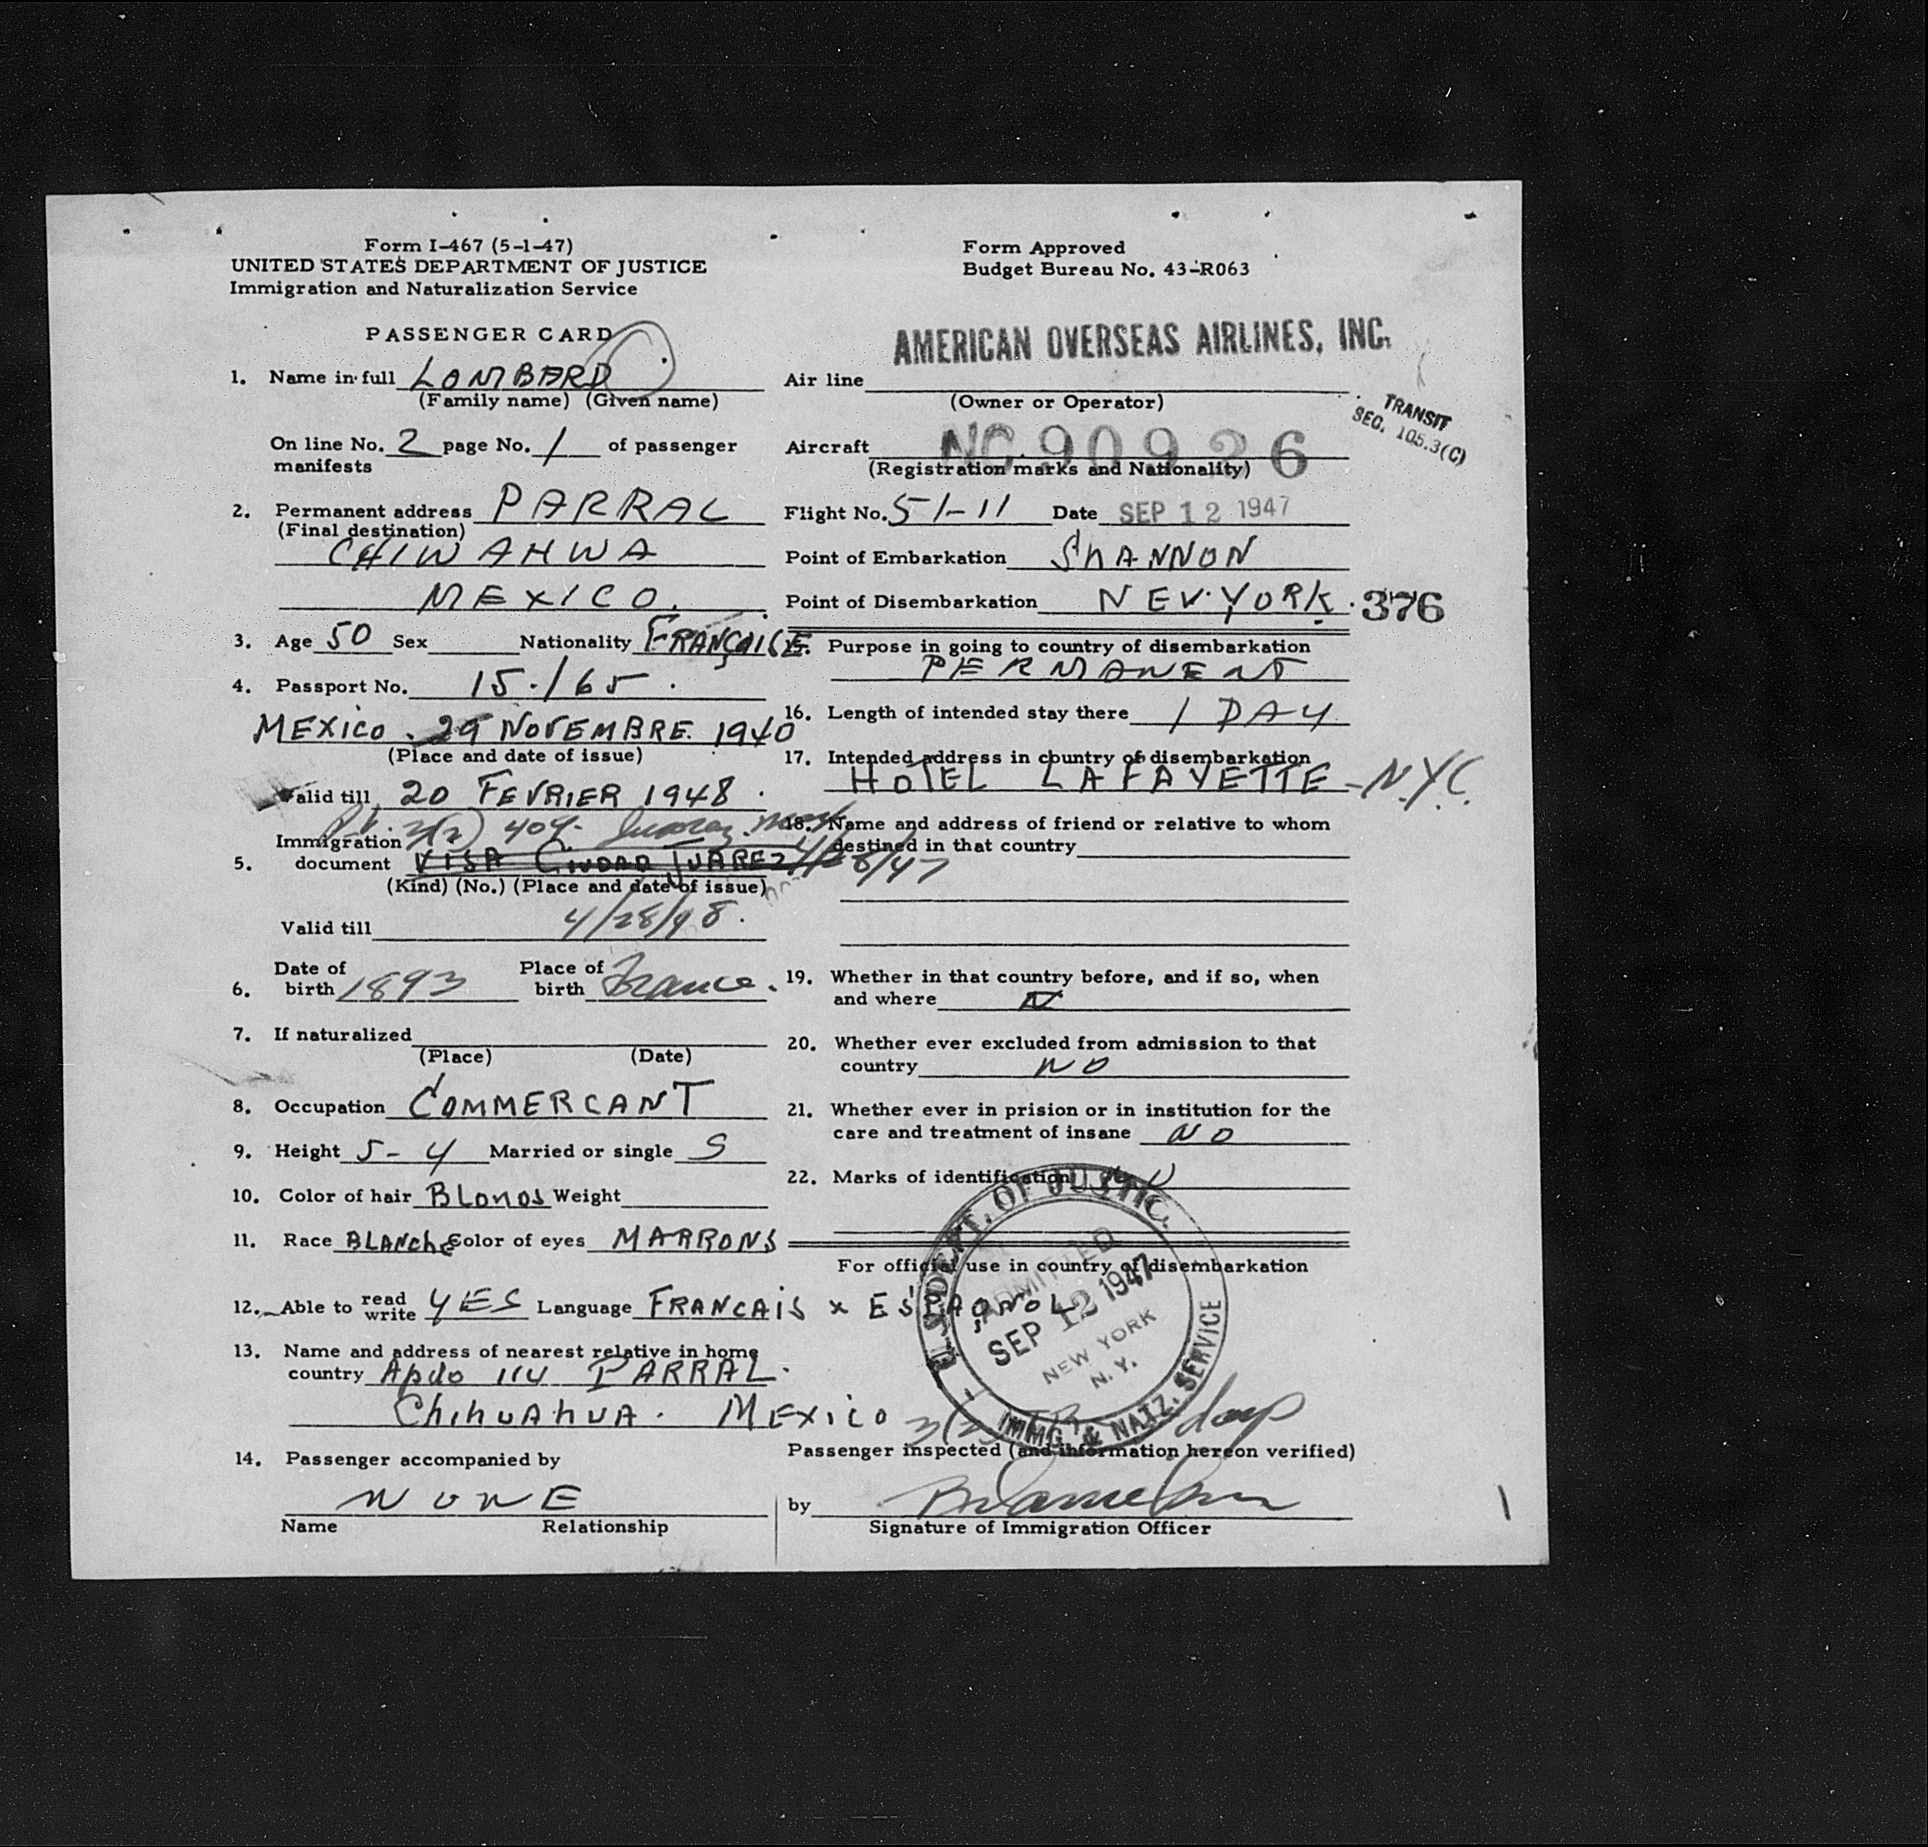 Form I-467 (5-1-47)
UNITED STATES DEPARTMENT OF JUSTICE
Immigration and Naturalization Service
Form Approved
Budget Bureau No. 43-R063
PASSENGER CARD
1. Name in full LOMBARD
(Family name) (Given name)
On line No. 2 page No. 1 of passenger
manifests
2. Permanent address PARRAL
(Final destination)
CHIWAHWA
MEXICO.
3. Age 50 Sex Nationality FRANÇAISE
4. Passport No. 15.165.
MEXICO. 29 NOVEMBRE. 1940
(Place and date of issue)
Valid till 20 FEVRIER 1948.
Immigration
5. document VISA CIUDAD JUAREZ 4/28/47
(Kind) (No.) (Place and date of issue)
Valid till 4/28/48.
6. Date of birth 1893 Place of birth France.
7. If naturalized
(Place) (Date)
8. Occupation COMMERCANT
9. Height 5-4 Married or single S
10. Color of hair BLONDS Weight
11. Race BLANChE Color of eyes MARRONS
12. Able to read write YES Language FRANCAIS x ESPAGNOL
13. Name and address of nearest relative in home
country Apdo 114 PARRAL.
ChihuAhuA. MExico
14. Passenger accompanied by
NONE
Name Relationship
AMERICAN OVERSEAS AIRLINES, INC.
Air line
(Owner or Operator)
TRANSIT
SEC. 105.3(C)
Aircraft NC 90926
(Registration marks and Nationality)
Flight No. 51-11 Date SEP 12 1947
Point of Embarkation ShANNON
Point of Disembarkation NEV.YORK. 376
Purpose in going to country of disembarkation
PERMANENT
16. Length of intended stay there 1 DAY
17. Intended address in country of disembarkation
HOTEL LAFAYETTE - N.Y.C.
18. Name and address of friend or relative to whom
destined in that country
19. Whether in that country before, and if so, when
and where N
20. Whether ever excluded from admission to that
country NO
21. Whether ever in prision or in institution for the
care and treatment of insane NO
22. Marks of identification
For official use in country of disembarkation
U.S. DEPT. OF JUSTIC.
ADMITTED
SEP 12 1947
NEW YORK
N.Y.
IMMG. & NATZ. SERVICE
Passenger inspected (and information hereon verified)
by
Signature of Immigration Officer